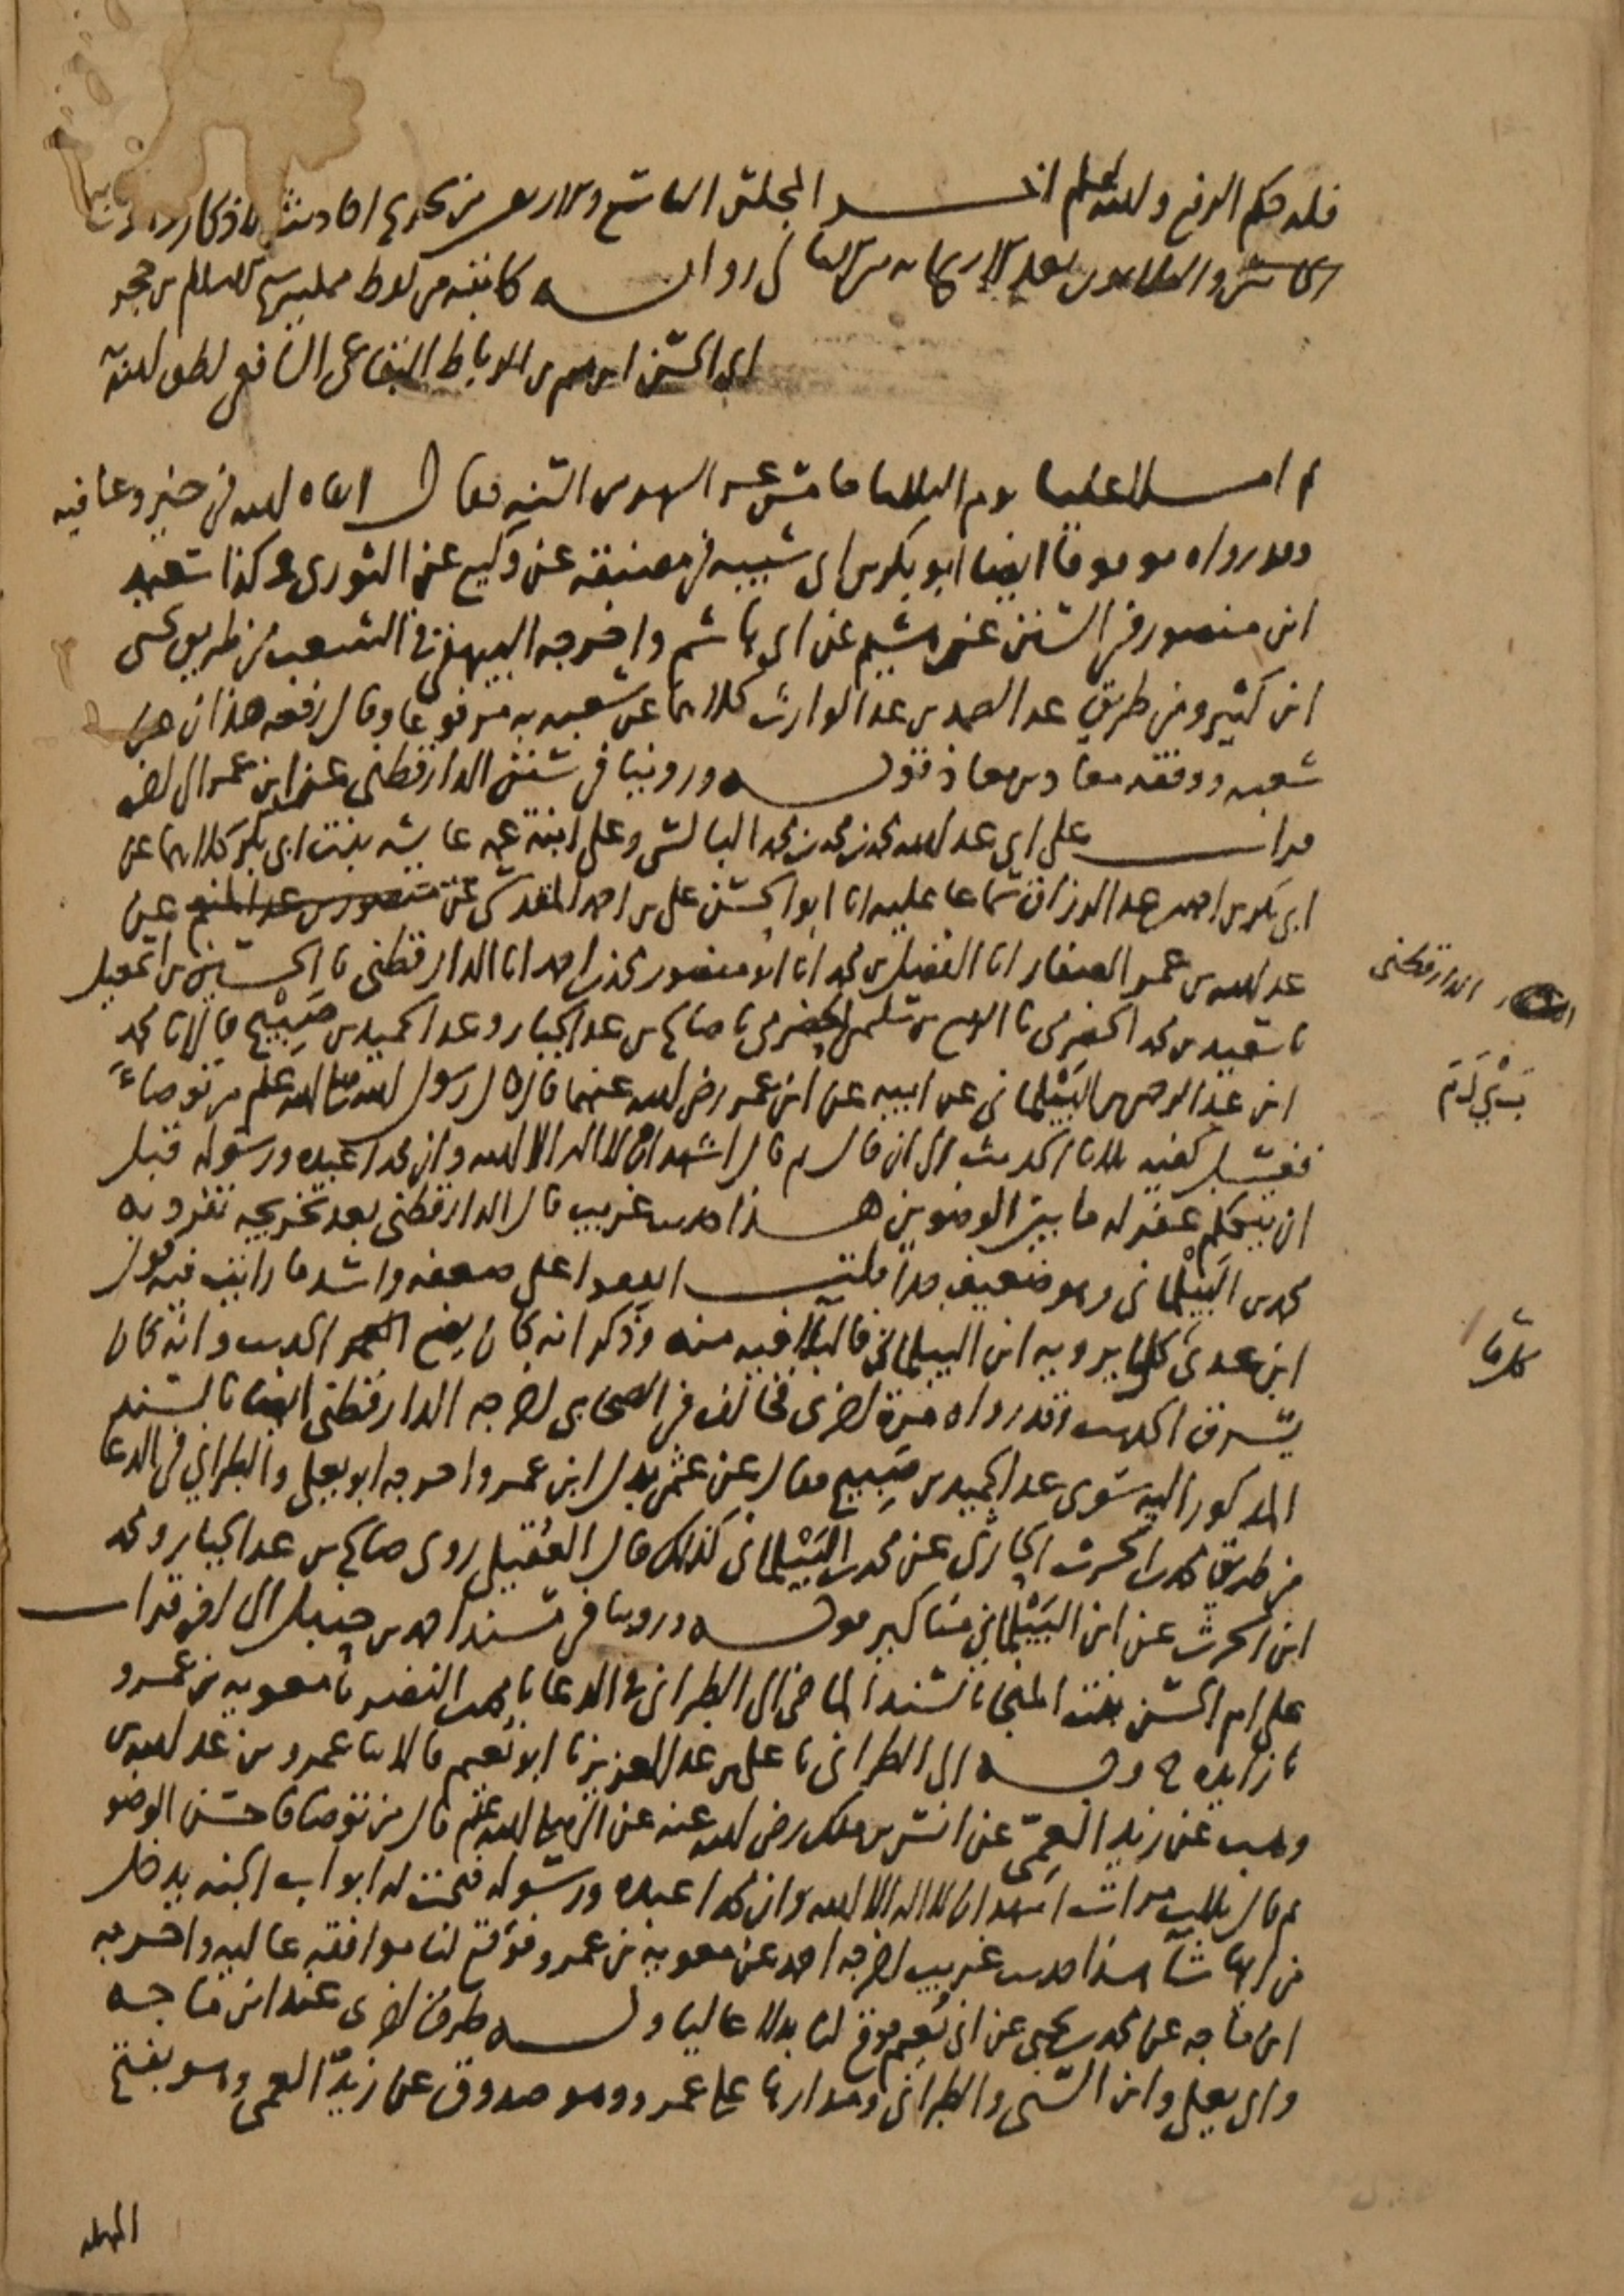 فله حكم الرفع والله اعلم اخر المجلس التاسع والاربعين من تخريج احاديث الاذكار
وهو التاسع والثلاثون بعد الاربعمائة من الامالي رواية كاتبه من لفظ ممليه شيخ الاسلام بن حجر
ابي الحسن ابرهيم بن الرباط البقاعي الشافعي لطف الله به
ثم املى علينا يوم الثلاثا خامس عشر الشهر من السنة فقال ابقاه الله في خير وعافيه
وقد رواه موقوفا ايضا ابو بكر بن ابي شيبه في مصنفه عن وكيع عن الثوري وكذا سعيد
ابن منصور في السنن عن هشيم عن ابي هاشم واخرجه البيهقي في الشعب من طريق يحيى
ابن كثير ومن طريق عبد الصمد بن عبد الوارث كلاهما عن شعبه به مرفوعا وقال رفعه هذان عن
شعبه ووقفه معاذ بن معاذ قوله وروينا في سنن الدارقطني عن ابن عمر الى اخره
قرات على ابي عبد الله محمد بن محمد بن محمد البالسي وعلى ابنة عمه عايشه بنت ابي بكر كلاهما عن
ابي بكر بن احمد بن عبد الرزاق سماعا عليه انا ابو الحسن علي بن احمد المقدسي عن منصور بن عبد المنعم عن
عبد الله بن عمر الصفار انا الفضل بن محمد انا ابو منصور محمد بن احمد انا الدارقطني نا الحسين بن اسمعيل
الدارقطني
نا سعيد بن محمد الحضرمي نا الربيع بن سلمى الحضرمي نا صالح بن عبد الجبار وعبد الحميد بن صبيح قالا نا محمد
ابن عبد الرحمن البيلماني عن ابيه عن ابن عمر رضي الله عنهما قال قال رسول الله صلى الله عليه وسلم من توضا
فغسل كفيه ثلاثا الحديث الى ان قال ثم قال اشهد ان لا اله الا الله وان محمدا عبده ورسوله قبل
ان يتكلم غفر له ما بين الوضوين هذا حديث غريب قال الدارقطني بعد تخريجه تفرد به
محمد بن البيلماني وهو ضعيف جدا قلت اتفقوا على ضعفه واشد ما رايت فيه قول
ابن عدي كلما يرويه ابن البيلماني فالبلا فيه منه وذكر انه كان يضع الحديث وانه كان
كل ما
يسرق الحديث وقد رواه مرة اخرى فخالف في الصحابي اخرجه الدارقطني ايضا بالسند
المذكور اليه سوى عبد الحميد بن صبيح فقال عن عثمن بدل ابن عمر واخرجه ابو يعلى والطبراني في الدعا
من طريق محمد بن الحرث الحارثي عن محمد بن البيلماني كذلك قال العقيلي روى صالح بن عبد الجبار ومحمد
ابن الحرث عن ابن البيلماني مناكير قوله وروينا في مسند احمد بن حنبل الى اخره قرات
على ام الحسن بنت المنجا بالسند الماضي الى الطبراني في الدعا نا محمد بن النضر نا معويه بن عمرو
نا زايده ح وبه الى الطبراني نا علي بن عبد العزيز نا ابو نعيم قالا نا عمرو بن عبد الله بن
وهب عن زيد العمي عن انس بن ملك رضي الله عنه عن النبي صلى الله عليه وسلم قال من توضا فاحسن الوضو
ثم قال ثلاث مرات اشهد ان لا اله الا الله وان محمدا عبده ورسوله فتحت له ابواب الجنه يدخل
من ايها شا هذا حديث غريب اخرجه احمد عن معويه بن عمرو فوقع لنا موافقه عاليه واخرجه
ابن ماجه عن محمد بن يحيى عن ابي نعيم فوقع لنا بدلا عاليا وله طرق اخرى عند ابن ماجه
وابي يعلى وابن السني والطبراني ومدارها على عمرو وهو صدوق عن زيد العمي وهو بفتح
المهمله